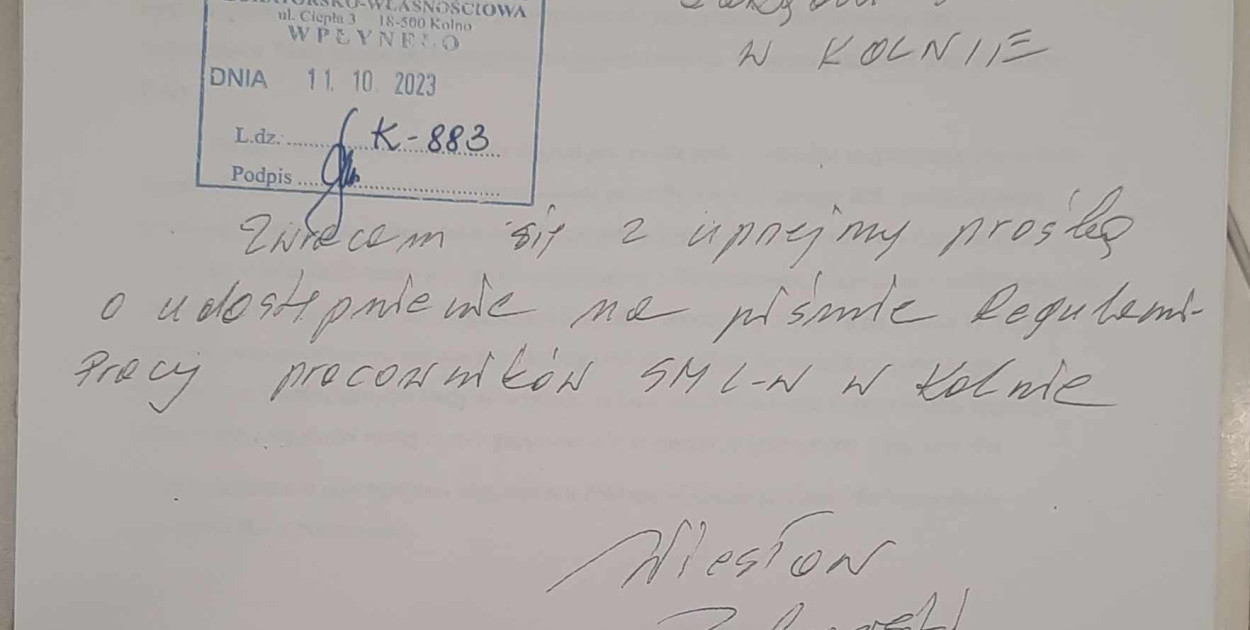 -WŁASNOŚCIOWA
ul. Ciepła 3 18-500 Kolno
WPŁYNĘŁO
DNIA 11. 10. 2023
L.dz.: K-883
Podpis
W KOLNIE
Zwracam się z uprzejmą prośbą
o udostępnienie na piśmie Regulami-
Pracy pracowników SML-W w Kolnie
Wiesław